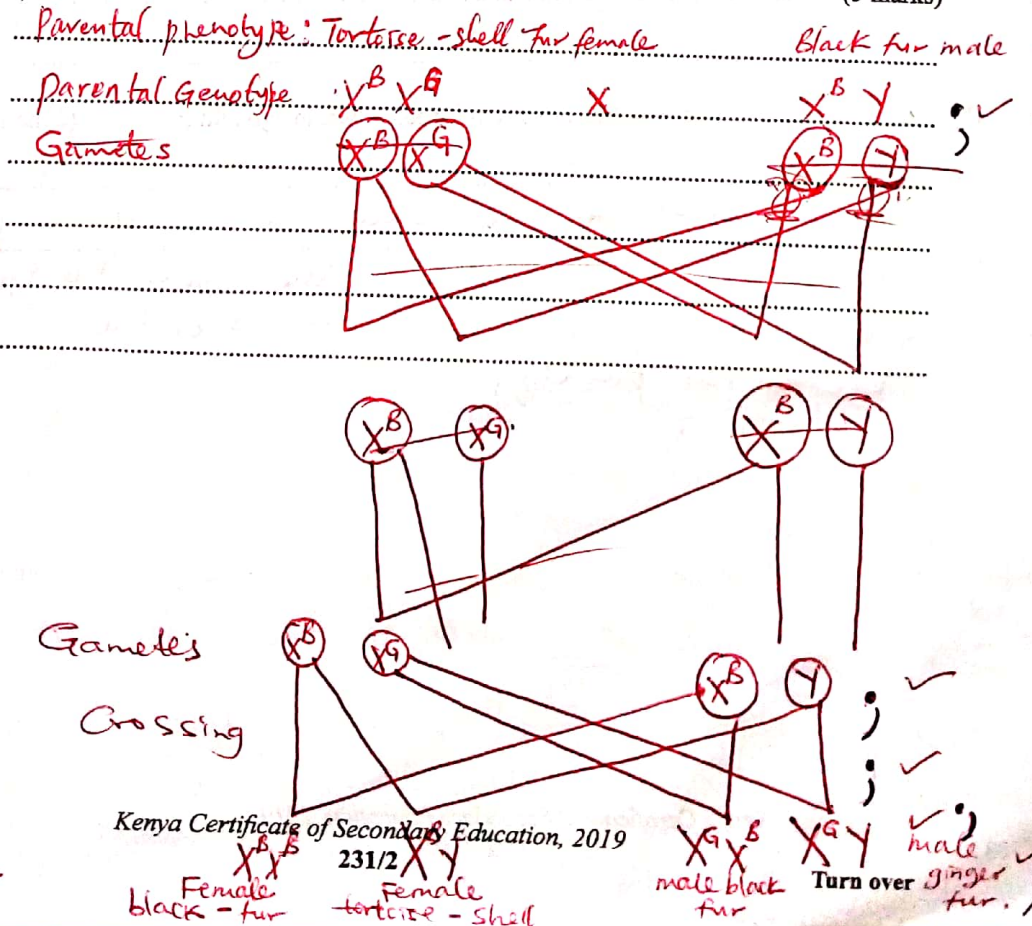 (5 marks)
Parental phenotype: Tortoise-shell fur female Black fur male
Parental Genotype X^B X^G X X^B Y ; ✓
Gametes X^B X^G X^B Y
X^B X^G X^B Y
Gametes X^B X^G X^B Y ; ✓
Crossing ; ✓
Kenya Certificate of Secondary Education, 2019
X^B X^B 231/2 X^B Y X^G X^B X^G Y ✓ ;
Female black-fur Female tortoise-shell male black fur Turn over male ginger fur. ✓